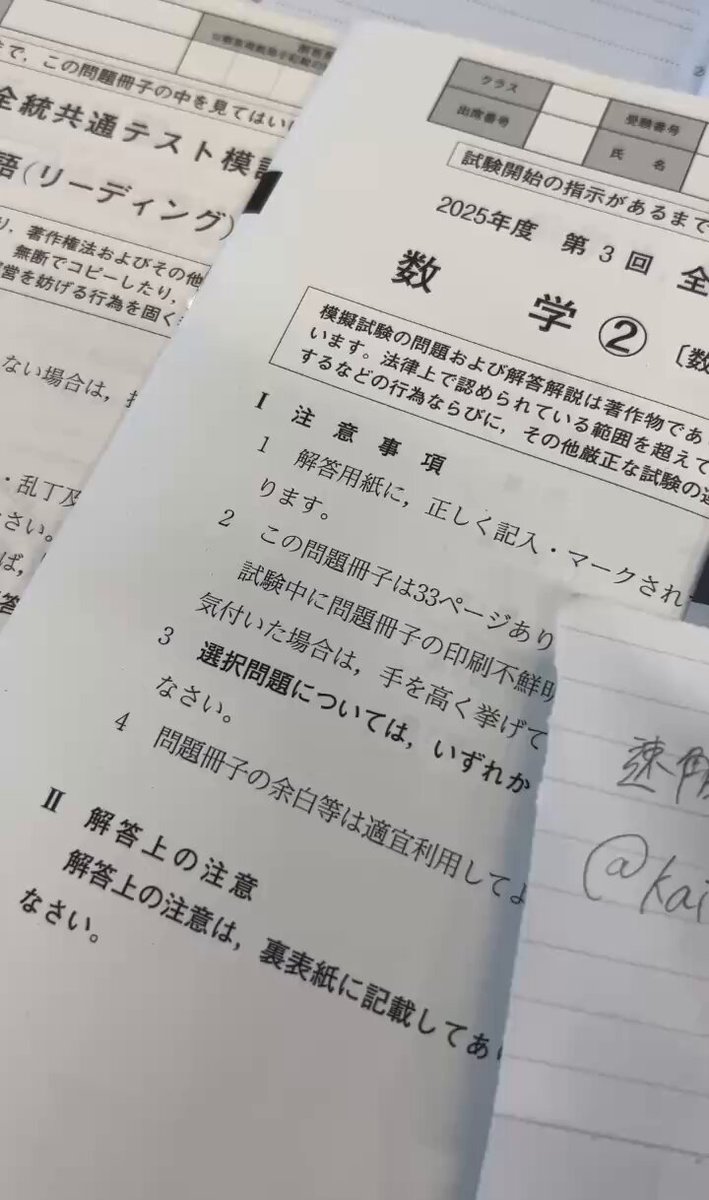 で,この問題冊子の中を見てはいけ
全統共通テスト模試
語(リーディング)
,著作権法およびその他
無断でコピーしたり,
営を妨げる行為を固く
ない場合は,
・乱丁及
さい。
ば,
答
クラス
受験番号
出席番号
氏 名
試験開始の指示があるまで
2025年度 第3回 全
数 学 ② 〔数
模擬試験の問題および解答解説は著作物であ
います。法律上で認められている範囲を超えて
するなどの行為ならびに,その他厳正な試験の運
Ⅰ 注意事項
1 解答用紙に,正しく記入・マークされ
ります。
2 この問題冊子は33ページあり
試験中に問題冊子の印刷不鮮明
気付いた場合は,手を高く挙げて
3 選択問題については,いずれか
なさい。
4 問題冊子の余白等は適宜利用してよ
Ⅱ 解答上の注意
解答上の注意は,裏表紙に記載してあ
なさい。
速解
@kai